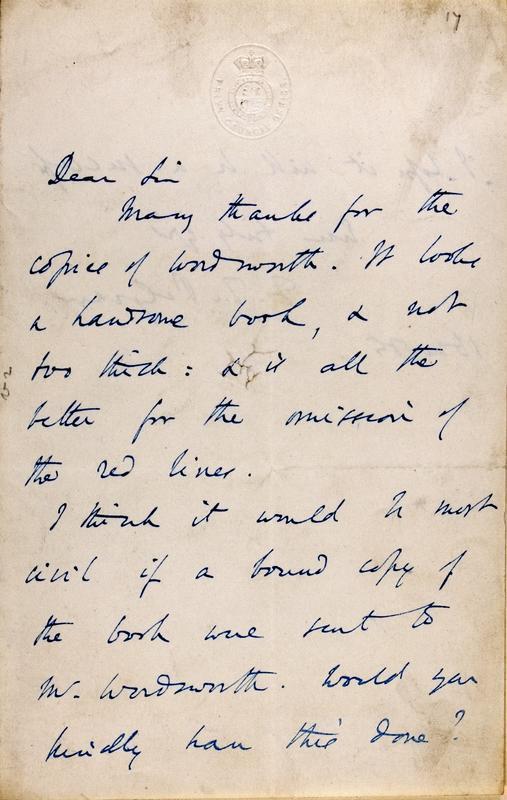 17
PRIVY COUNCIL OFFICE
Dear Sir
Many thanks for the
copies of Wordsworth. It looks
a handsome book, & not
too thick: & is all the
better for the omission of
the red lines.
I think it would be most
civil if a bound copy of
the book were sent to
Mr. Wordsworth. Would you
kindly have this done?